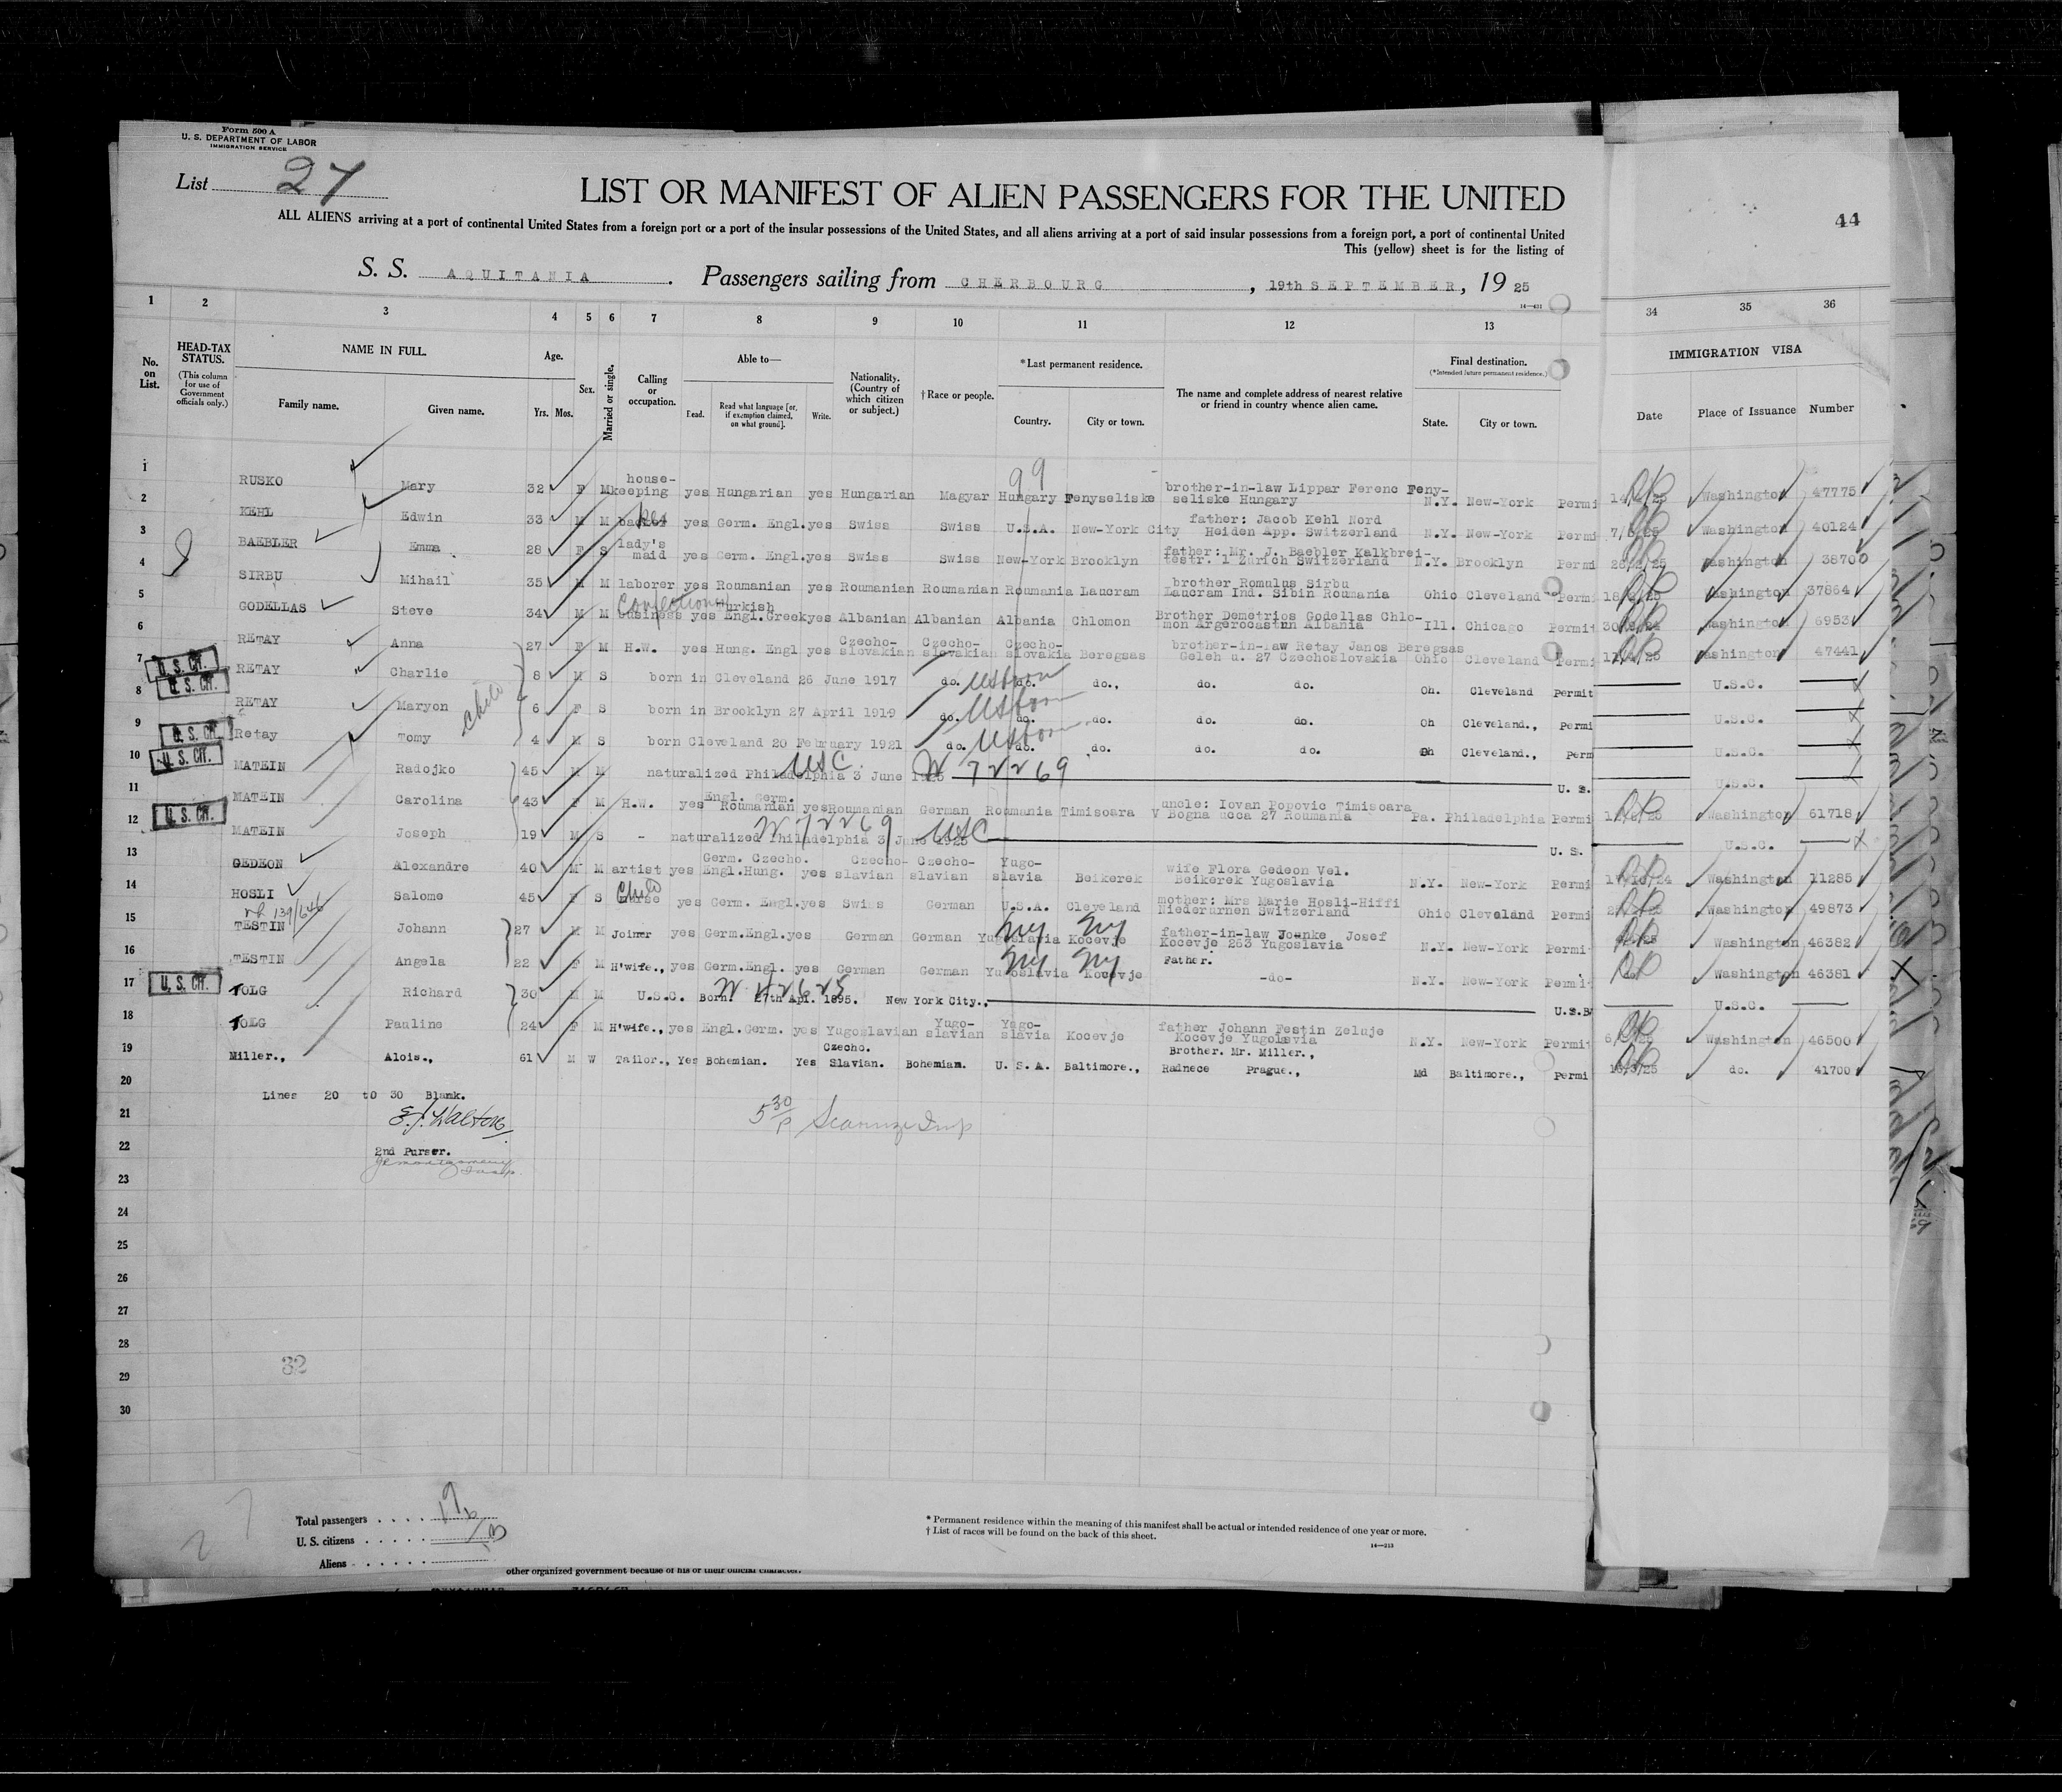 Form 500 A
U. S. DEPARTMENT OF LABOR
IMMIGRATION SERVICE
List 27
LIST OR MANIFEST OF ALIEN PASSENGERS FOR THE UNITED
44
ALL ALIENS arriving at a port of continental United States from a foreign port or a port of the insular possessions of the United States, and all aliens arriving at a port of said insular possessions from a foreign port, a port of continental United
This (yellow) sheet is for the listing of
S. S. AQUITANIA. Passengers sailing from CHERBOURG, 19th SEPTEMBER, 19 25
1 2 3 4 5 6 7 8 9 10 11 12 13 34 35 36
No. on List.
HEAD-TAX STATUS.
(This column for use of Government officials only.)
NAME IN FULL.
Family name. Given name.
Age.
Yrs. Mos.
Sex.
Married or single.
Calling or occupation.
Able to—
Read. Read what language [or, if exemption claimed, on what ground]. Write.
Nationality. (Country of which citizen or subject.)
† Race or people.
*Last permanent residence.
Country. City or town.
The name and complete address of nearest relative or friend in country whence alien came.
Final destination.
(*Intended future permanent residence.)
State. City or town.
IMMIGRATION VISA
Date Place of Issuance Number
99
1 RUSKO Mary 32 F M house-keeping yes Hungarian yes Hungarian Magyar Hungary Fenyseliske brother-in-law Lippar Ferenc Feny-seliske Hungary N.Y. New-York Permi Washington 47775
2 KEHL Edwin 33 M M yes Germ. Engl. yes Swiss Swiss U.S.A. New-York City father: Jacob Kehl Nord Heiden App. Switzerland N.Y. New-York Permi Washington 40124
3 BAEBLER Emma 28 F S lady's maid yes Germ. Engl. yes Swiss Swiss New-York Brooklyn father: Mr. J. Baebler Kalkbrei-testr. 1 Zurich Switzerland N.Y. Brooklyn Permi Washington 38700
4 SIRBU Mihail 35 M M laborer yes Roumanian yes Roumanian Roumanian Roumania Laucram brother Romulus Sirbu Laucram Ind. Sibin Roumania Ohio Cleveland Permi Washington 37864
5 GODELLAS Steve 34 M M Confectionery business yes Turkish Engl.Greek yes Albanian Albanian Albania Chlomon Brother Demetrios Godellas Chlo-mon Argerocastnn Albania Ill. Chicago Permit Washington 6953
6 RETAY Anna 27 F M H.W. yes Hung. Engl yes Czecho-slovakian Czecho-slovakian Czecho-slovakia Beregsas brother-in-law Retay Janos Beregsas Geleh u. 27 Czechoslovakia Ohio Cleveland Permi Washington 47441
7 U. S. CIT. RETAY Charlie 8 M S born in Cleveland 26 June 1917 do. US born do. do., do. do. Oh. Cleveland Permit U.S.C.
8 U. S. CIT. RETAY Maryon child 6 F S born in Brooklyn 27 April 1919 do. US born do. do. do. do. Oh Cleveland., Permi U.S.C.
9 U. S. CIT. Retay Tomy 4 M S born Cleveland 20 February 1921 do. US born do. do. do. do. Oh Cleveland., Perm U.S.C.
10 U. S. CIT. MATEIN Radojko 45 M M naturalized Philadelphia 3 June 1925 USC N 72269 U. S. U.S.C.
11 MATEIN Carolina 43 F M H.W. yes Engl. Germ. Roumanian yes Roumanian German Roumania Timisoara V uncle: Iovan Popovic Timisoara Bogna noca 27 Roumania Pa. Philadelphia Permi Washington 61718
12 U. S. CIT. MATEIN Joseph 19 M S - naturalized Philadelphia 3 June 1925 N 72269 USC U. S. U.S.C.
13 GEDEON Alexandre 40 M M artist yes Germ. Czecho. Engl.Hung. yes Czecho-slavian Czecho-slavian Yugo-slavia Beikerek wife Flora Gedeon Vel. Beikerek Yugoslavia N.Y. New-York Permi Washington 11285
14 HOSLI Salome 45 F S Child nurse yes Germ. Engl. yes Swiss German U.S.A. Cleveland mother: Mrs Marie Hosli-Hiffi Niederurnen Switzerland Ohio Cleveland Permi Washington 49873
15 TESTIN Johann 27 M M Joiner yes Germ.Engl. yes German German Yugoslavia Kocevje NY NY father-in-law Joanke Josef Kocevje 263 Yugoslavia N.Y. New-York Permi Washington 46382
16 TESTIN Angela 22 F M H'wife., yes Germ.Engl. yes German German Yugoslavia Kocevje NY NY Father. -do- N.Y. New-York Permi do Washington 46381
17 U. S. CIT. TOLG Richard 30 M M U.S.C. Born. 27th Apl. 1895. New York City., U.S. U.S.C.
18 TOLG Pauline 24 F M H'wife., yes Engl.Germ. yes Yugoslavian Yugo-slavian Yugo-slavia Kocevje father Johann Testin Zeluje Kocevje Yugoslavia N.Y. New-York Permi Washington 46500
19 Miller., Alois., 61 M W Tailor., Yes Bohemian. Yes Czecho. Slavian. Bohemian. U. S. A. Baltimore., Brother. Mr. Miller., Radnece Prague., Md Baltimore., Permi do. 41700
20
Lines 20 to 30 Blank.
21
5 30/P
22
2nd Purser.
23
24
25
26
27
28
29
30
32
27
Total passengers
U. S. citizens
Aliens
* Permanent residence within the meaning of this manifest shall be actual or intended residence of one year or more.
† List of races will be found on the back of this sheet.
14—213
other organized government because of his or their official character.